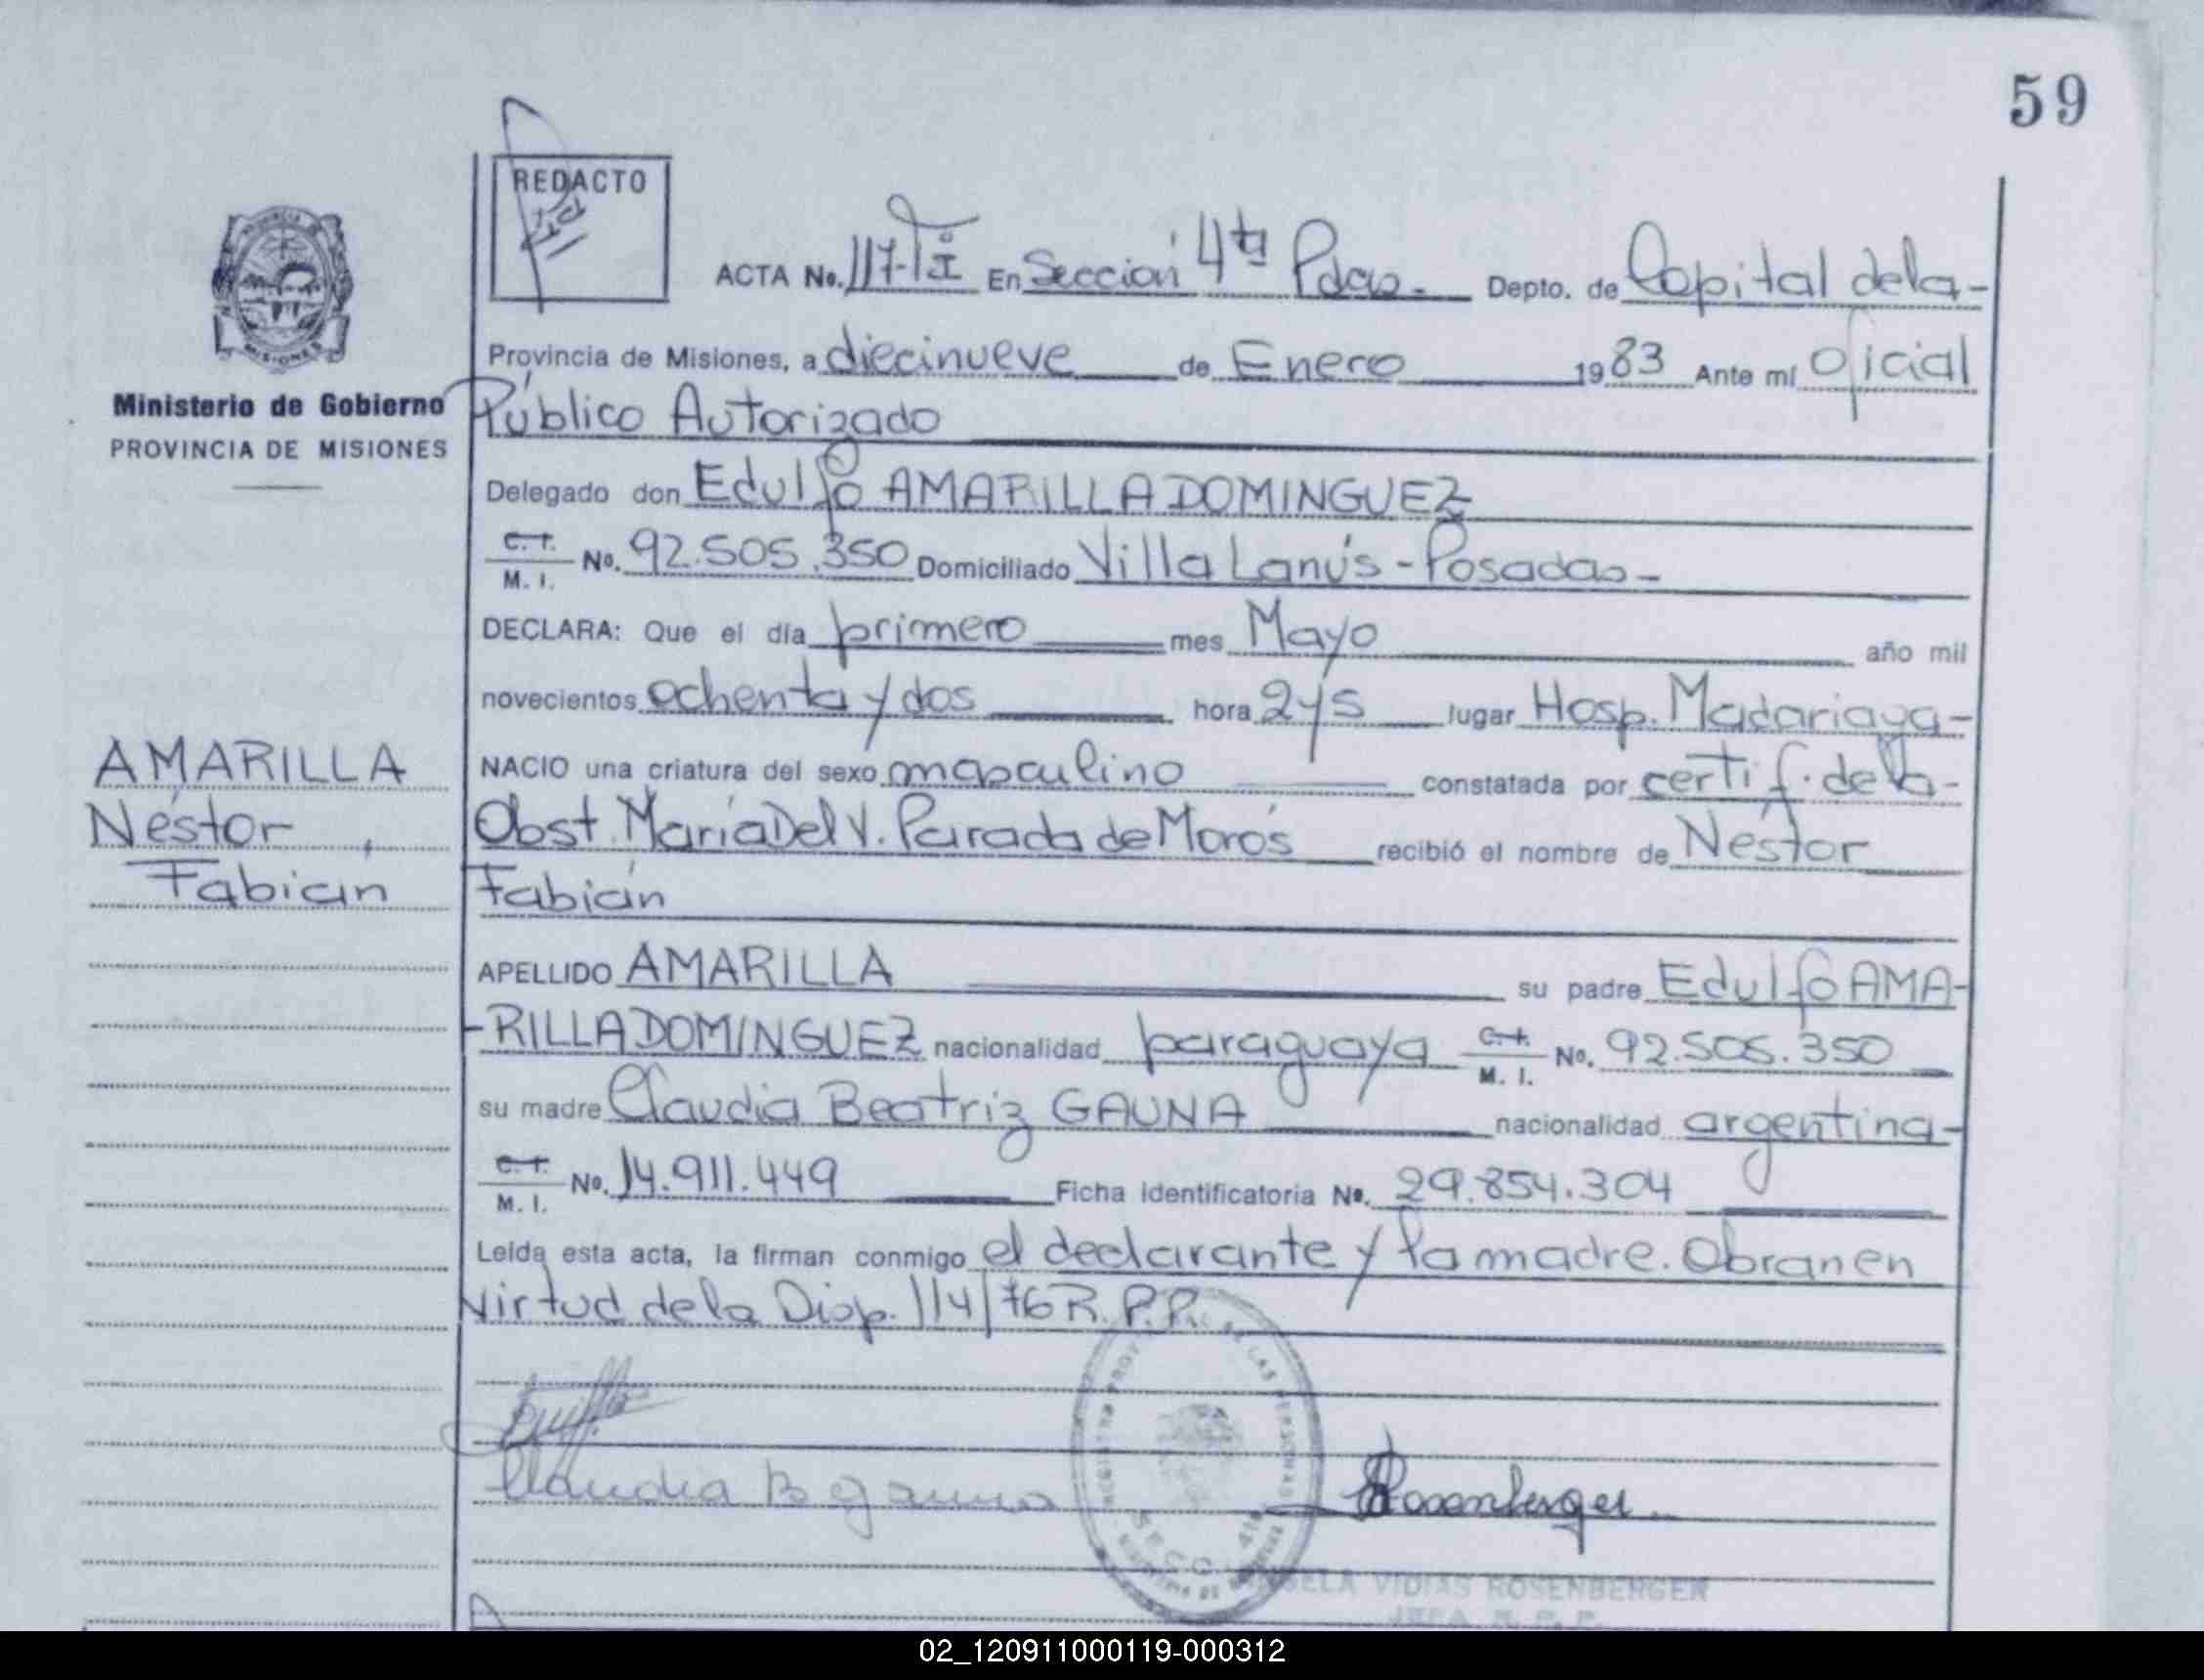 59
REDACTO
ACTA No. 117-TºI En Sección 4ta Pdas.- Depto. de Capital de la-
Provincia de Misiones, a diecinueve de Enero 1983 Ante mí Oficial
Ministerio de Gobierno
PROVINCIA DE MISIONES
Público Autorizado
Delegado don Edulfo AMARILLA DOMINGUEZ
C. I. M. I. No. 92.505.350 Domiciliado Villa Lanús - Posadas-
DECLARA: Que el día primero mes Mayo año mil
novecientos ochenta y dos hora 2 y 5 lugar Hosp. Madariaga-
NACIO una criatura del sexo masculino constatada por certif. de la-
Obst. María Del V. Parada de Morós recibió el nombre de Néstor
Fabián
AMARILLA
Néstor
Fabián
APELLIDO AMARILLA su padre Edulfo AMA-
-RILLA DOMINGUEZ nacionalidad paraguaya C. I. M. I. No. 92.505.350
su madre Claudia Beatriz GAUNA nacionalidad argentina-
C. I. M. I. No. 14.911.449 Ficha identificatoria No. 29.854.304
Leída esta acta, la firman conmigo el declarante y la madre. Obran en
virtud de la Disp. 114/76 R.P.P.
Claudia B Gauna
Rosenberger
SECC. 4ta
VIDIAS ROSENBERGER
JEFA R. P. P.
02_120911000119-000312